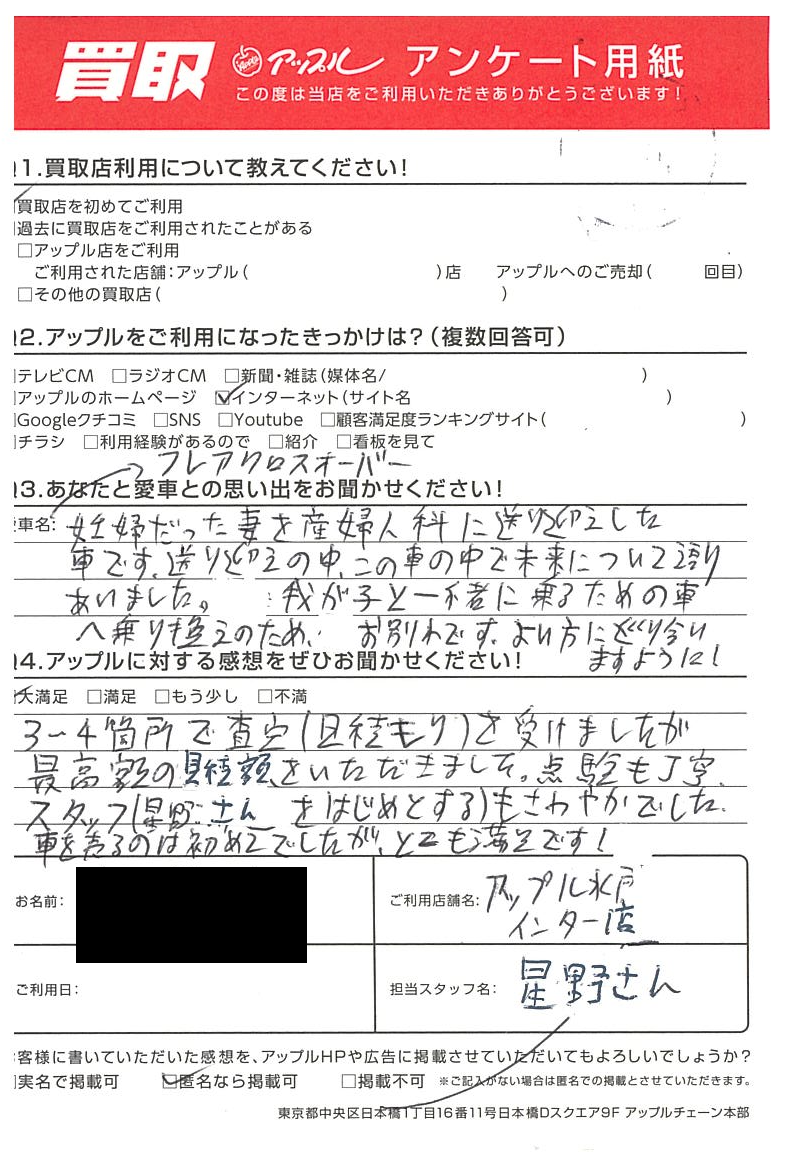 買取 アップル アンケート用紙
この度は当店をご利用いただきありがとうございます!
1.買取店利用について教えてください!
買取店を初めてご利用
過去に買取店をご利用されたことがある
□アップル店をご利用
ご利用された店舗:アップル( )店 アップルへのご売却( 回目)
□その他の買取店( )
2.アップルをご利用になったきっかけは?(複数回答可)
テレビCM □ラジオCM □新聞・雑誌(媒体名/ )
アップルのホームページ ☑インターネット(サイト名 )
Googleクチコミ □SNS □Youtube □顧客満足度ランキングサイト( )
チラシ □利用経験があるので □紹介 □看板を見て
→フレアクロスオーバー
3.あなたと愛車との思い出をお聞かせください!
車名: 妊婦だった妻を産婦人科に送り迎えした
車です。送り迎えの中、この車の中で未来について語り
あいました。 我が子と一緒に乗るための車
へ乗り換えのため、お別れです。よい方に巡り合い
ますように!
4.アップルに対する感想をぜひお聞かせください!
大満足 □満足 □もう少し □不満
3〜4箇所で査定(見積もり)を受けましたが
最高額の見積額をいただきました。点験も丁寧、
スタッフ(星野さん をはじめとする)もさわやかでした。
車を売るのは初めてでしたが、とても満足です!
お名前:
ご利用店舗名: アップル水戸
インター店
ご利用日:
担当スタッフ名: 星野さん
客様に書いていただいた感想を、アップルHPや広告に掲載させていただいてもよろしいでしょうか?
実名で掲載可 ☑匿名なら掲載可 □掲載不可 ※ご記入がない場合は匿名での掲載とさせていただきます。
東京都中央区日本橋1丁目16番11号日本橋Dスクエア9F アップルチェーン本部